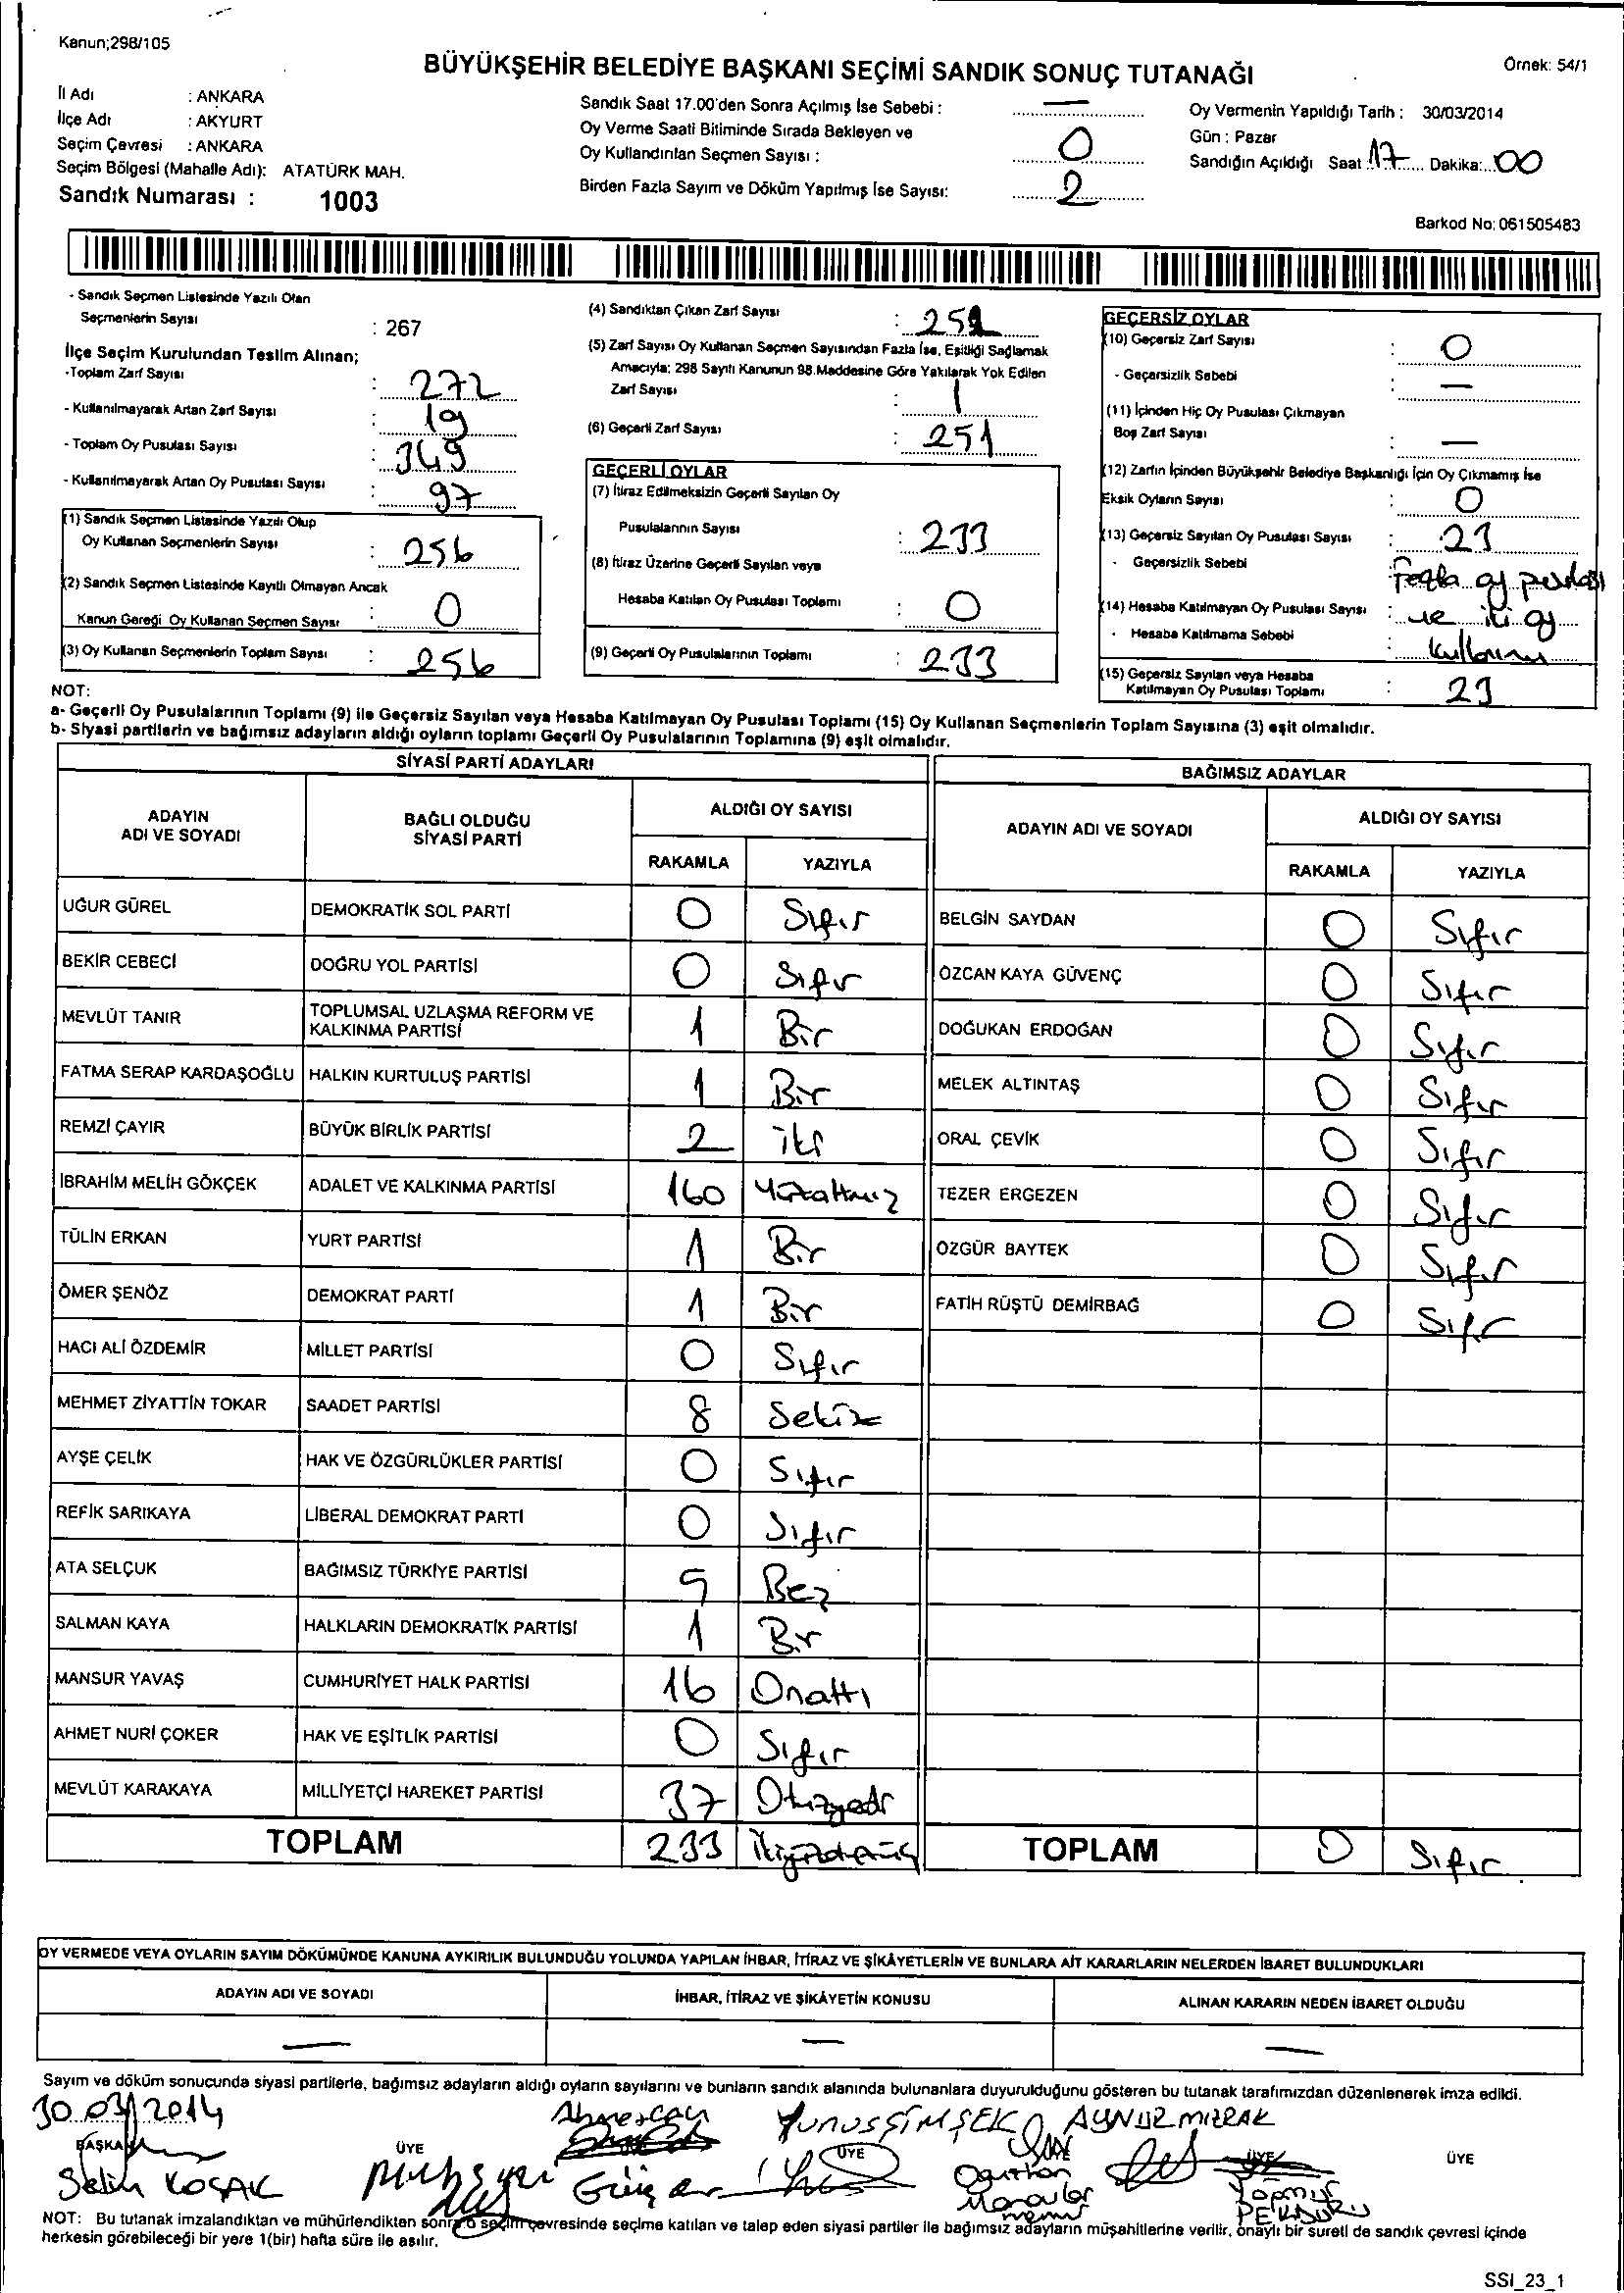 Kanun;298/105
BÜYÜKŞEHİR BELEDİYE BAŞKANI SEÇİMİ SANDIK SONUÇ TUTANAĞI
Örnek: 54/1
İl Adı : ANKARA
İlçe Adı : AKYURT
Seçim Çevresi : ANKARA
Seçim Bölgesi (Mahalle Adı): ATATÜRK MAH.
Sandık Numarası : 1003
Sandık Saat 17.00'den Sonra Açılmış İse Sebebi : —
Oy Verme Saati Bitiminde Sırada Bekleyen ve
Oy Kullandırılan Seçmen Sayısı : 0
Birden Fazla Sayım ve Döküm Yapılmış İse Sayısı: 2
Oy Vermenin Yapıldığı Tarih : 30/03/2014
Gün : Pazar
Sandığın Açıldığı Saat 17 Dakika: 00
Barkod No: 061505483
- Sandık Seçmen Listesinde Yazılı Olan
Seçmenlerin Sayısı : 267
İlçe Seçim Kurulundan Teslim Alınan;
-Toplam Zarf Sayısı : 272
- Kullanılmayarak Artan Zarf Sayısı : 19
- Toplam Oy Pusulası Sayısı : 349
- Kullanılmayarak Artan Oy Pusulası Sayısı : 97
(1) Sandık Seçmen Listesinde Yazılı Olup
Oy Kullanan Seçmenlerin Sayısı : 256
(2) Sandık Seçmen Listesinde Kayıtlı Olmayan Ancak
Kanun Gereği Oy Kullanan Seçmen Sayısı : 0
(3) Oy Kullanan Seçmenlerin Toplam Sayısı : 256
(4) Sandıktan Çıkan Zarf Sayısı :
(5) Zarf Sayısı Oy Kullanan Seçmen Sayısından Fazla İse, Eşitliği Sağlamak
Amacıyla; 298 Sayılı Kanunun 98.Maddesine Göre Yakılarak Yok Edilen
Zarf Sayısı : 1
(6) Geçerli Zarf Sayısı : 251
GEÇERLİ OYLAR
(7) İtiraz Edilmeksizin Geçerli Sayılan Oy
Pusulalarının Sayısı : 233
(8) İtiraz Üzerine Geçerli Sayılan veya
Hesaba Katılan Oy Pusulası Toplamı : 0
(9) Geçerli Oy Pusulalarının Toplamı : 233
GEÇERSİZ OYLAR
(10) Geçersiz Zarf Sayısı : 0
- Geçersizlik Sebebi : —
(11) İçinden Hiç Oy Pusulası Çıkmayan
Boş Zarf Sayısı : —
(12) Zarfın İçinden Büyükşehir Belediye Başkanlığı İçin Oy Çıkmamış İse
Eksik Oyların Sayısı : 0
(13) Geçersiz Sayılan Oy Pusulası Sayısı : 23
- Geçersizlik Sebebi : Fazla oy pusulası
(14) Hesaba Katılmayan Oy Pusulası Sayısı : ve iki oy
- Hesaba Katılmama Sebebi : kullanımı
(15) Geçersiz Sayılan veya Hesaba
Katılmayan Oy Pusulası Toplamı : 23
NOT:
a- Geçerli Oy Pusulalarının Toplamı (9) ile Geçersiz Sayılan veya Hesaba Katılmayan Oy Pusulası Toplamı (15) Oy Kullanan Seçmenlerin Toplam Sayısına (3) eşit olmalıdır.
b- Siyasi partilerin ve bağımsız adayların aldığı oyların toplamı Geçerli Oy Pusulalarının Toplamına (9) eşit olmalıdır.
SİYASİ PARTİ ADAYLARI
ADAYIN ADI VE SOYADI BAĞLI OLDUĞU SİYASİ PARTİ ALDIĞI OY SAYISI
RAKAMLA YAZIYLA
UĞUR GÜREL DEMOKRATİK SOL PARTİ 0 Sıfır
BEKİR CEBECİ DOĞRU YOL PARTİSİ 0 Sıfır
MEVLÜT TANIR TOPLUMSAL UZLAŞMA REFORM VE KALKINMA PARTİSİ 1 Bir
FATMA SERAP KARDAŞOĞLU HALKIN KURTULUŞ PARTİSİ 1 Bir
REMZİ ÇAYIR BÜYÜK BİRLİK PARTİSİ 2 iki
İBRAHİM MELİH GÖKÇEK ADALET VE KALKINMA PARTİSİ 160 Yüzaltmız
TÜLİN ERKAN YURT PARTİSİ 1 Bir
ÖMER ŞENÖZ DEMOKRAT PARTİ 1 Bir
HACI ALİ ÖZDEMİR MİLLET PARTİSİ 0 Sıfır
MEHMET ZİYATTİN TOKAR SAADET PARTİSİ 8 Sekiz
AYŞE ÇELİK HAK VE ÖZGÜRLÜKLER PARTİSİ 0 Sıfır
REFİK SARIKAYA LİBERAL DEMOKRAT PARTİ 0 Sıfır
ATA SELÇUK BAĞIMSIZ TÜRKİYE PARTİSİ 5 Beş
SALMAN KAYA HALKLARIN DEMOKRATİK PARTİSİ 1 Bir
MANSUR YAVAŞ CUMHURİYET HALK PARTİSİ 16 Onaltı
AHMET NURİ ÇOKER HAK VE EŞİTLİK PARTİSİ 0 Sıfır
MEVLÜT KARAKAYA MİLLİYETÇİ HAREKET PARTİSİ 37 Otuzyedi
TOPLAM 233 ikiyüzotuzüç
BAĞIMSIZ ADAYLAR
ADAYIN ADI VE SOYADI ALDIĞI OY SAYISI
RAKAMLA YAZIYLA
BELGİN SAYDAN 0 Sıfır
ÖZCAN KAYA GÜVENÇ 0 Sıfır
DOĞUKAN ERDOĞAN 0 Sıfır
MELEK ALTINTAŞ 0 Sıfır
ORAL ÇEVİK 0 Sıfır
TEZER ERGEZEN 0 Sıfır
ÖZGÜR BAYTEK 0 Sıfır
FATİH RÜŞTÜ DEMİRBAĞ 0 Sıfır
TOPLAM 0 Sıfır
OY VERMEDE VEYA OYLARIN SAYIM DÖKÜMÜNDE KANUNA AYKIRILIK BULUNDUĞU YOLUNDA YAPILAN İHBAR, İTİRAZ VE ŞİKÂYETLERİN VE BUNLARA AİT KARARLARIN NELERDEN İBARET BULUNDUKLARI
ADAYIN ADI VE SOYADI İHBAR, İTİRAZ VE ŞİKÂYETİN KONUSU ALINAN KARARIN NEDEN İBARET OLDUĞU
— — —
Sayım ve döküm sonucunda siyasi partilerle, bağımsız adayların aldığı oyların sayılarını ve bunların sandık alanında bulunanlara duyurulduğunu gösteren bu tutanak tarafımızdan düzenlenerek imza edildi.
30.03/2014
YUNUS ŞİMŞEK AYNUR MIZRAK
BAŞKAN ÜYE ÜYE ÜYE ÜYE
Selim KOÇAK
NOT: Bu tutanak imzalandıktan ve mühürlendikten sonra o seçim çevresinde seçime katılan ve talep eden siyasi partiler ile bağımsız adayların müşahitlerine verilir, onaylı bir sureti de sandık çevresi içinde
herkesin görebileceği bir yere 1(bir) hafta süre ile asılır.
SSI_23_1